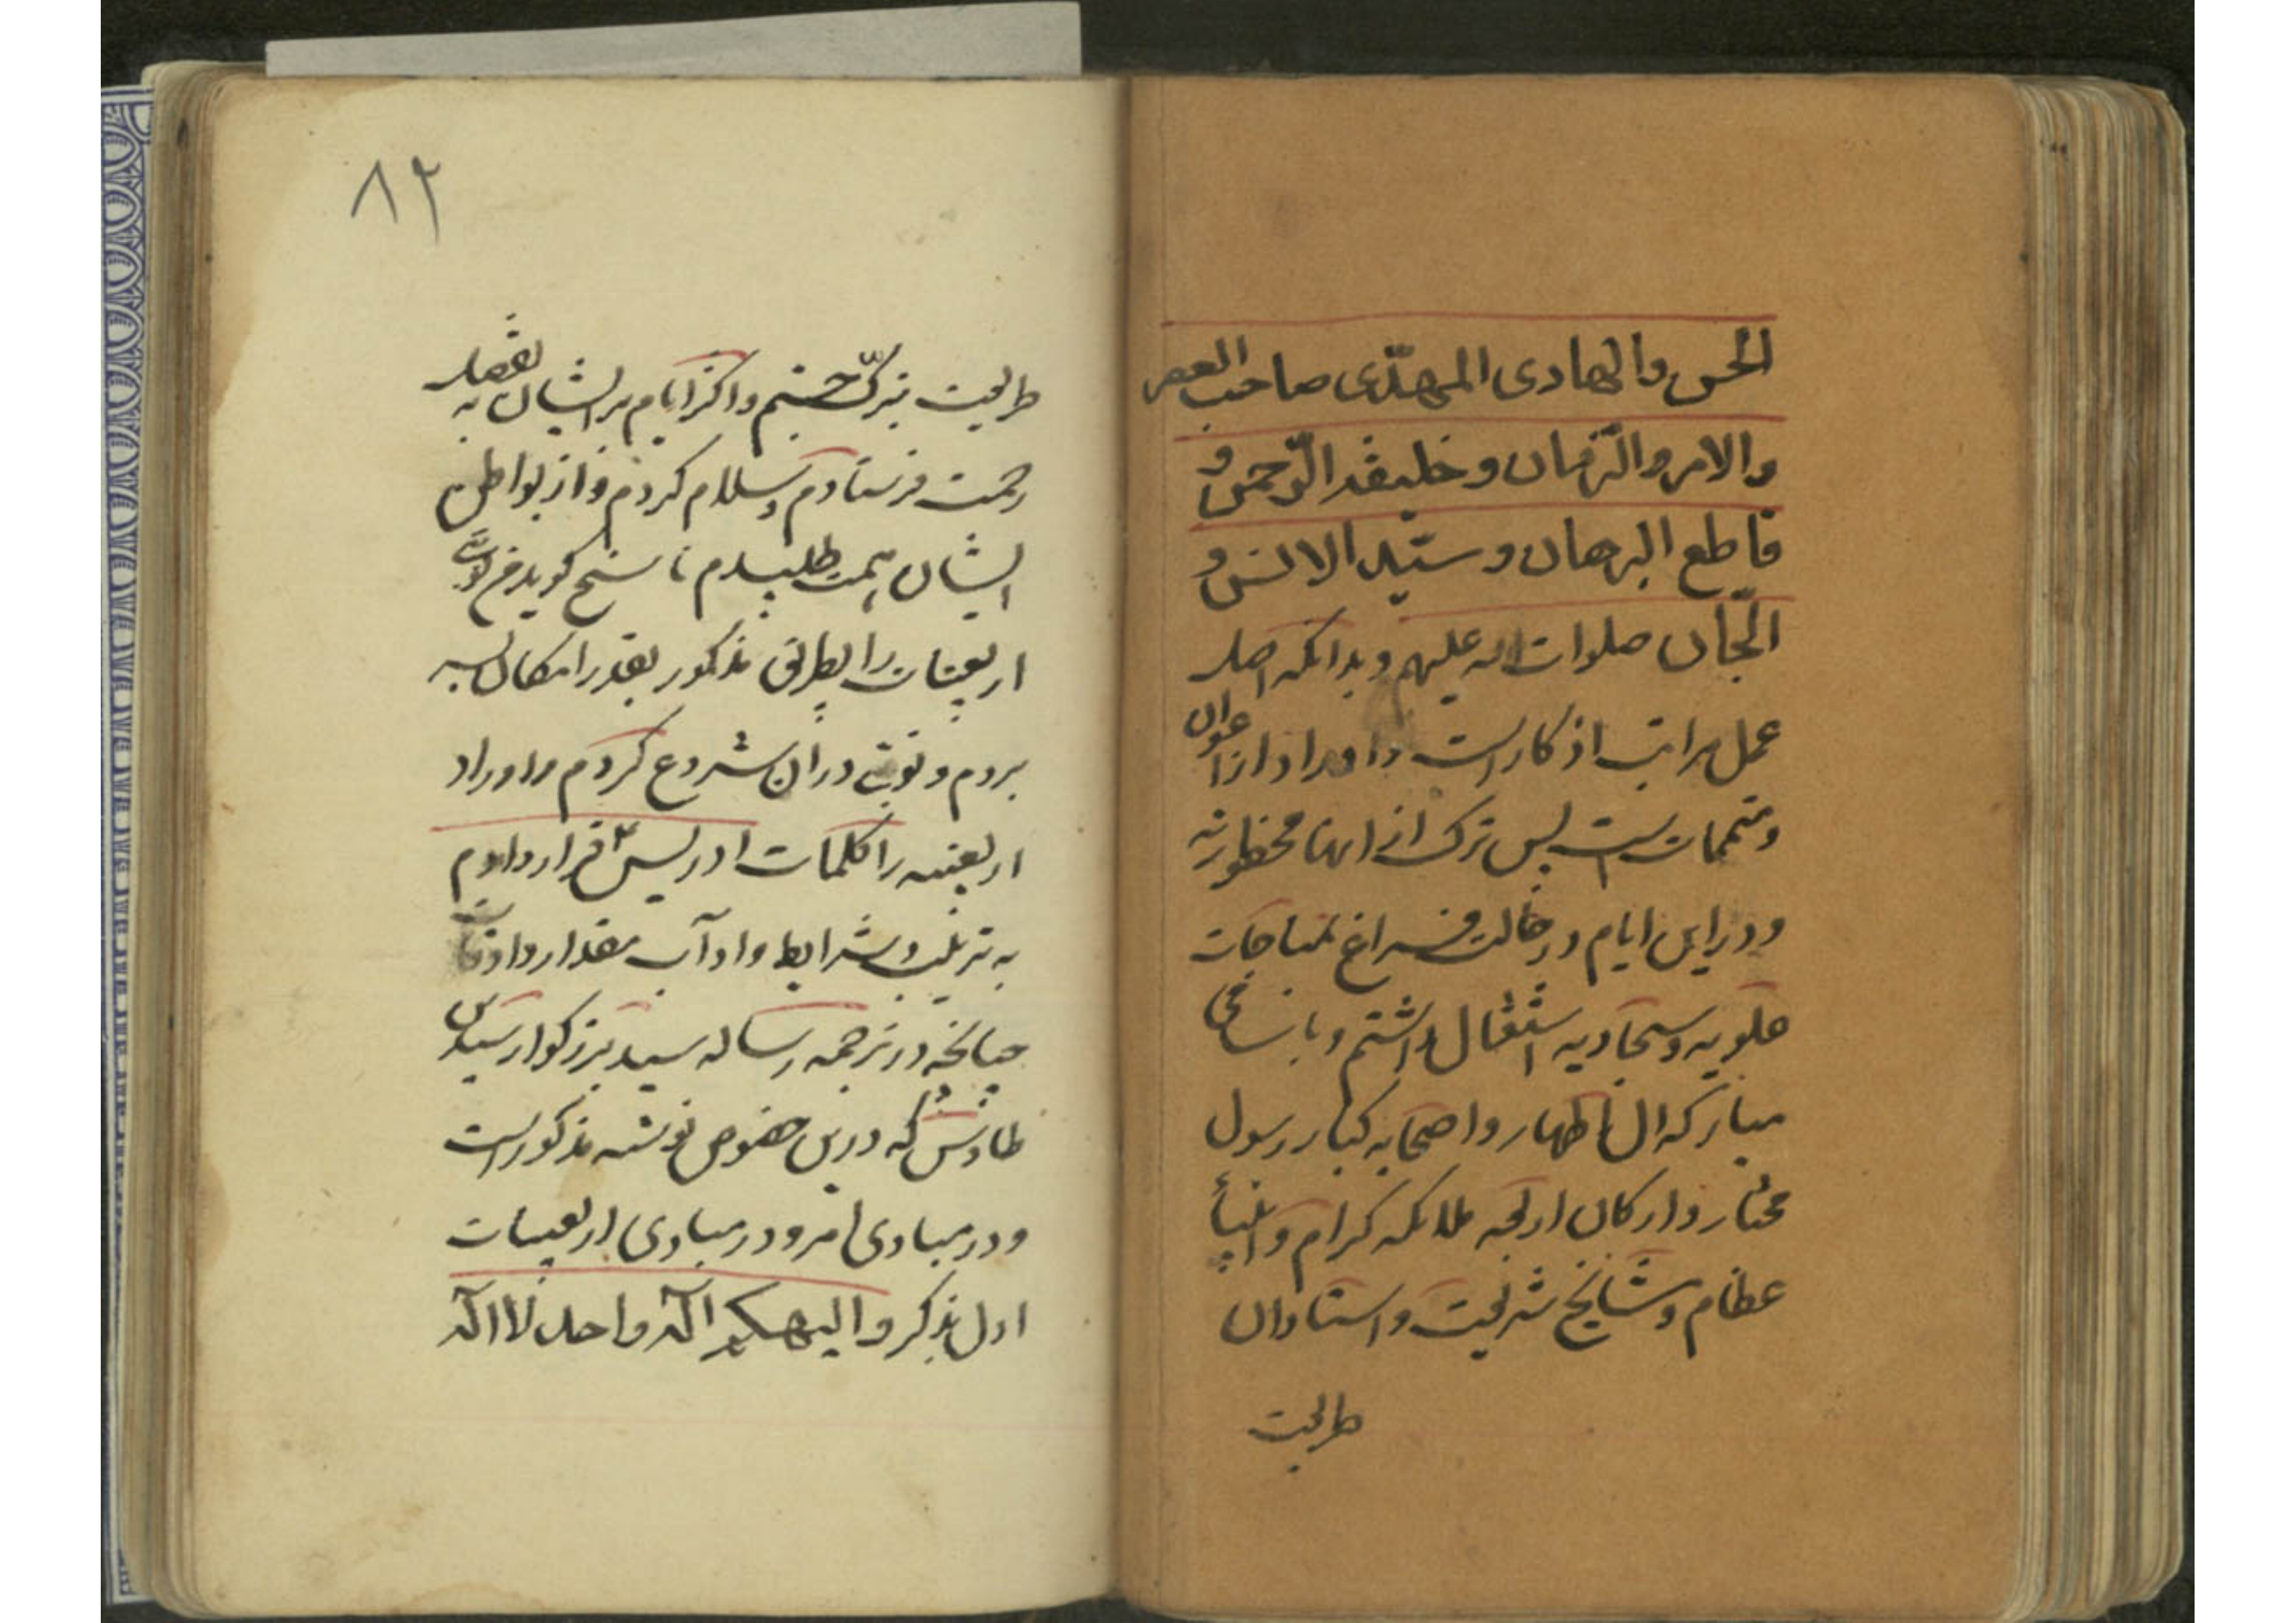 الحسن والهادی المهدّی صاحب العصر
والامر والزّمان وخلیفة الرّحمن و
قاطع البرهان وسیّد الانس و
الجّان صلوات اله علیهم وبدانکه اصل
عمل مراتب اذکار است واوراد از اعوان
ومتممات است پس ترک از انها محظور نه
ودر این ایام در حالت فراغ بمناجات
علویه وسجادیه اشتغال داشتم وبا اسامی
مبارکه ال اطهار واصحابه کبار رسول
مختار وارکان اربعه ملائکه کرام وانبیأ
عظام ومشایخ شریعت واستادان
طریقت
۸۲
طریقت تبرک جستم واکثر ایام بر ایشان به تفصیل
رحمت فرستادم وسلام کردم واز بواطن
ایشان همت طلبیدم تا شیخ کوید من نوبت
اربعینات را بطریق مذکور بقدر امکان بسر
بردم ونوبتی دران شروع کردم واوراد
اربعینیه را کلمات ادریس ع قرار دادم
به ترتیب وشرایط واداب مقدار واوقات
چنانچه در ترجمه رساله سید بزرکوار سید بن
طاوس که درین خصوص نوشته مذکور است
ودر مبادی امر ودر مبادی اربعینات
اول بذکر والهکم اله واحد لا اله